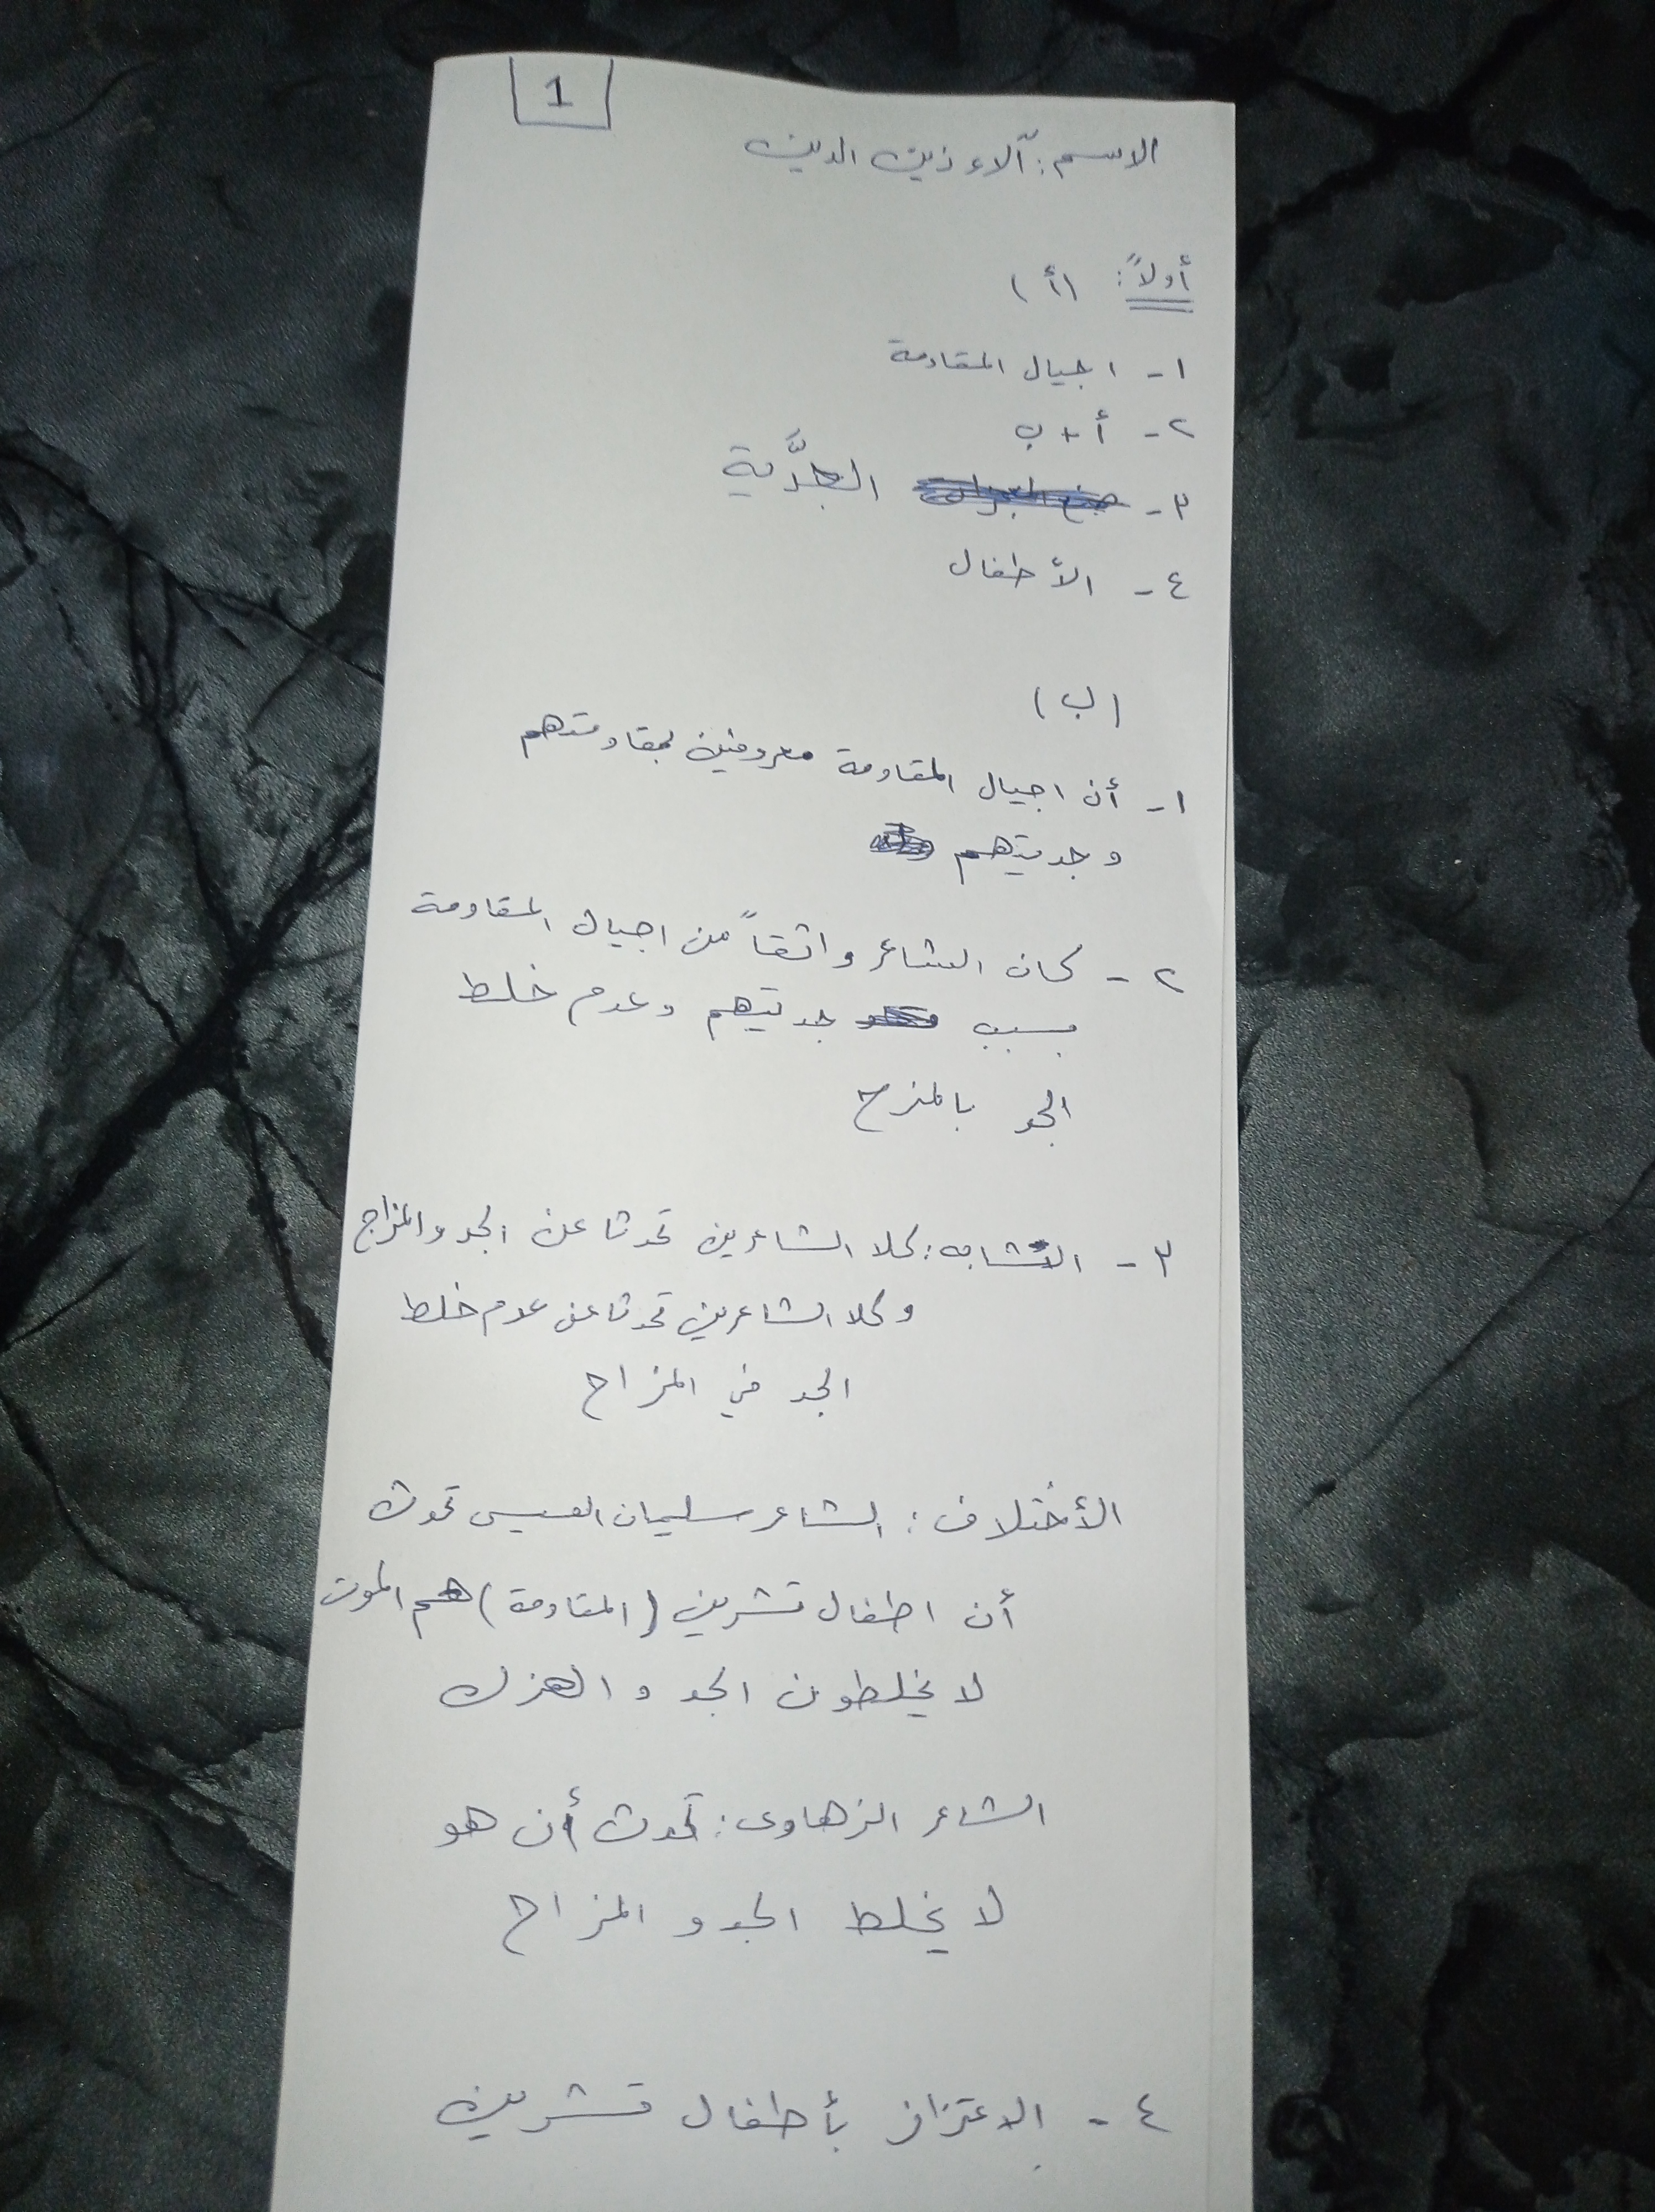 1
الاسم: آلاء زين الدين
أولاً: (أ)
١- اجيال المقاومة
٢- أ + ب
٣- الجدَّية
٤- الأطفال
(ب)
١- أن اجيال المقاومة معروفين بمقاومتهم
وجديتهم
٢- كان الشاعر واثقاً من اجيال المقاومة
بسبب جديتهم وعدم خلط
الجد بالمزح
٣- التشابه: كلا الشاعرين تحدثا عن الجد والمزاح
وكلا الشاعرين تحدثا عن عدم خلط
الجد في المزاح
الأختلاف: الشاعر سليمان العيسى تحدث
أن اطفال تشرين (المقاومة) هم الموت
لا يخلطون الجد و الهزل
الشاعر الزهاوي: تحدث أن هو
لا يخلط الجد و المزاح
٤- الاعتزاز بأطفال تشرين